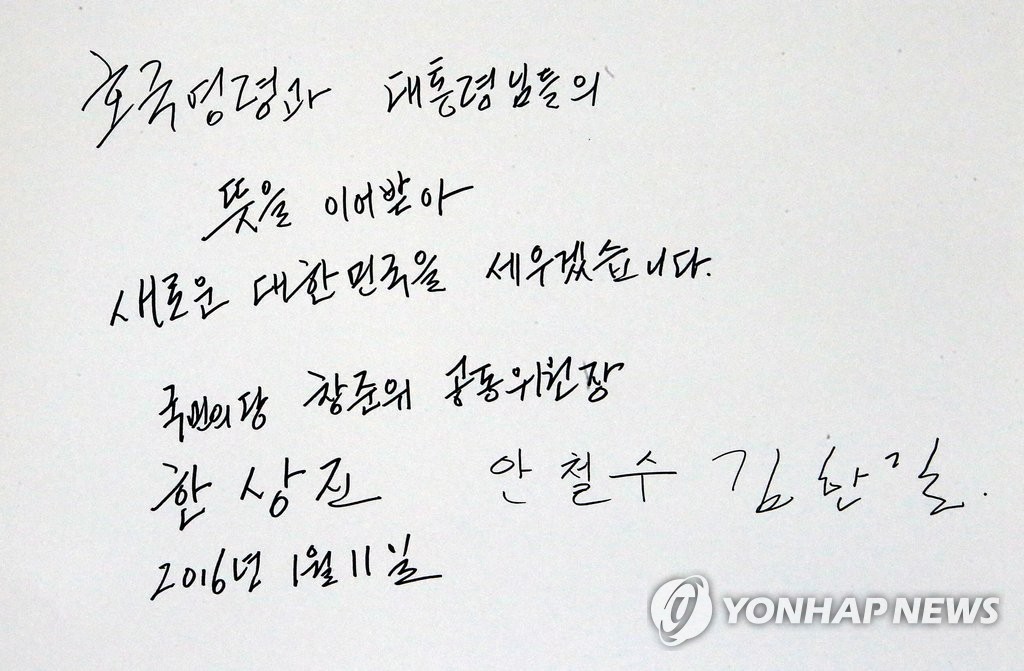 호국영령과 대통령님들의
뜻을 이어받아
새로운 대한민국을 세우겠습니다.
국민의당 창준위 공동위원장
한상진 안철수 김한길.
2016년 1월 11일
YONHAP NEWS